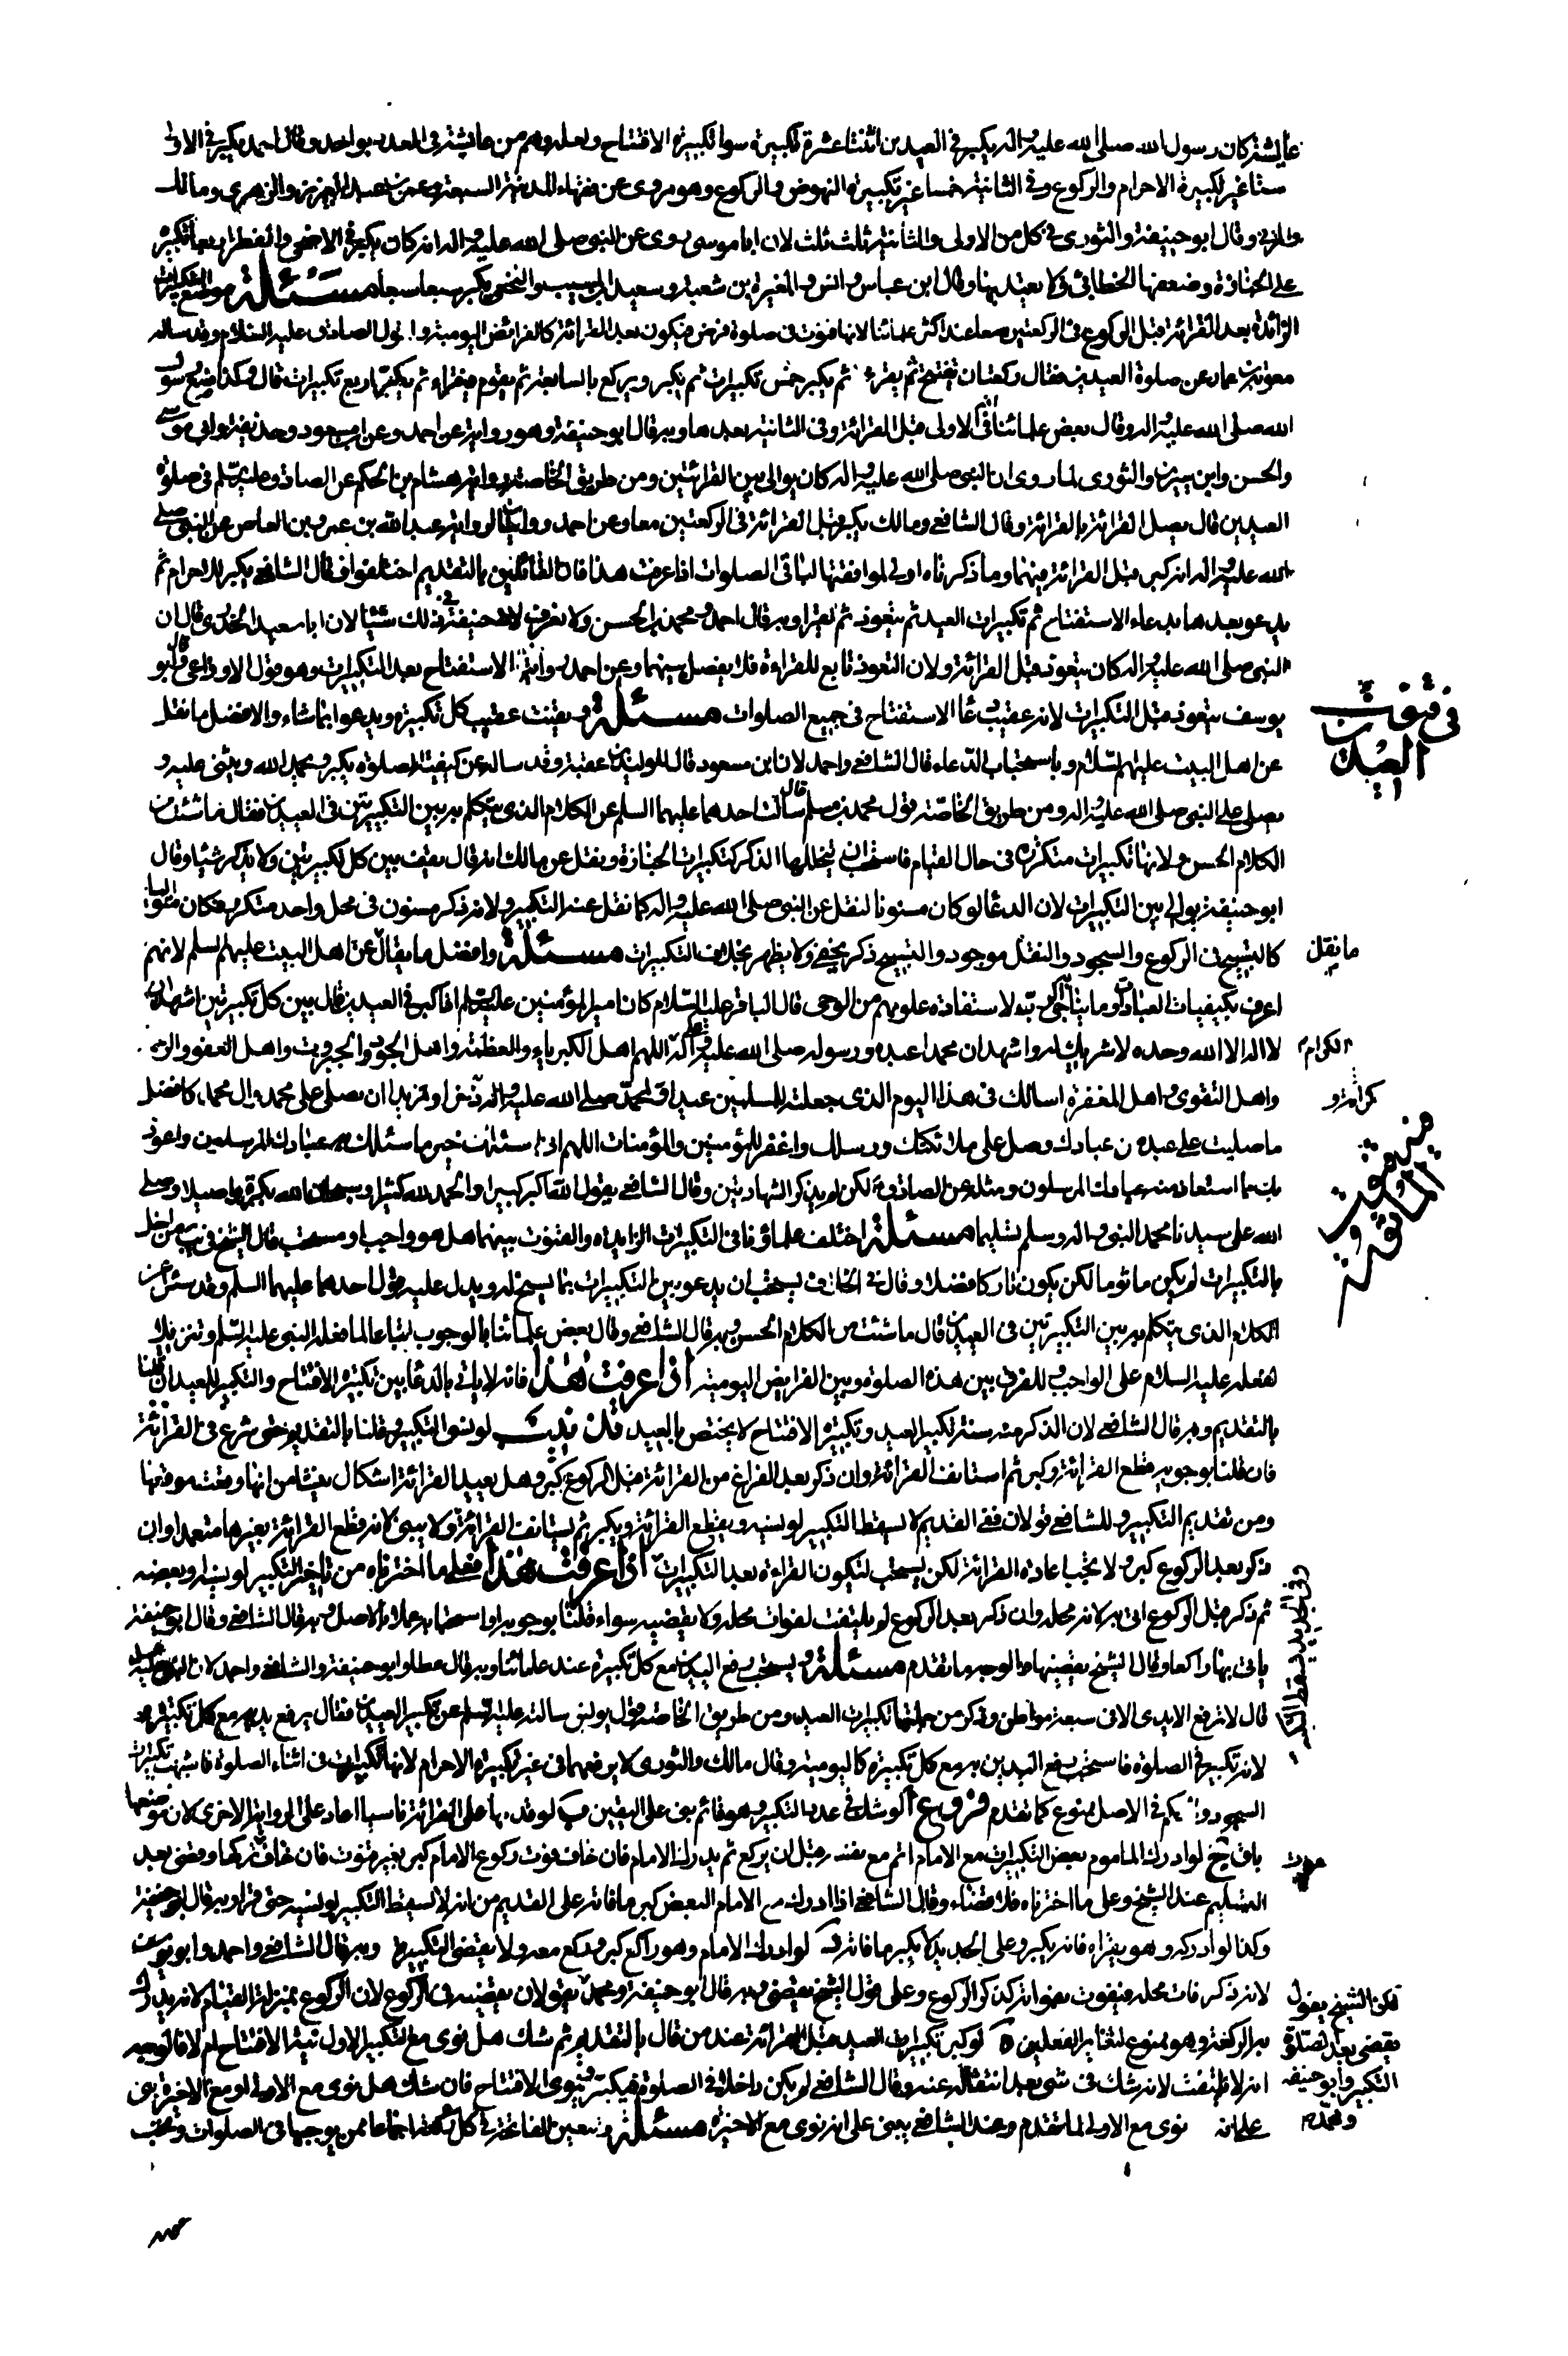 عايشة كان رسول الله صلى الله عليه واله يكبر في العيدين اثنتا عشرة تكبيرة سوا تكبيرة الافتتاح ... وقال احمد يكبر في الاولى
ستا غير تكبيرة الاحرام والركوع وفي الثانية خمسا غير تكبيرة النهوض والركوع وهو مروى عن فقهاء المدينة السبعة وعمر بن عبد العزيز والزهرى ومالك
والمزنى وقال ابو حنيفة والثورى في كل من الاولى والثانية ثلث ثلث لان ابا موسى روى عن النبى صلى الله عليه واله انه كان يكبر في الاضحى والفطر اربعا تكبيره
على الجنازة وضعفها الخطابى ... وقال ابن عباس وانس والمغيرة بن شعبة وسعيد بن المسيب والنخعى يكبر سبعا سبعا مسئلة موضع التكبيرات
الزائدة بعد القرائة قبل الركوع فى الركعتين معا عند اكثر علمائنا لانها قنوت فى صلوة فرض فيكون بعد القرائة كالفرائض اليومية ولقول الصادق عليه السلام وقد ساله
معوية بن عمار عن صلوة العيدين فقال ركعتان يفتتح ثم يقرء ثم يكبر خمس تكبيرات ثم يكبر ويركع بالسابعة ثم يقوم فيقراء ثم يكبر اربع تكبيرات قال وكذا صنع رسول
الله صلى الله عليه واله وقال بعض علمائنا انه فى الاولى قبل القرائة وفى الثانية بعدها وبه قال ابو حنيفة وهو رواية عن احمد وعن ابن مسعود وحذيفة وابى موسى
والحسن وابن سيرين والثورى لما روى ان النبى صلى الله عليه واله كان يوالى بين القرائتين ومن طريق الخاصة رواية هشام بن الحكم عن الصادق عليه السلم فى صلوة
العيدين قال يصل القرائة بالقرائة وقال الشافعى ومالك يكبر قبل القرائة فى الركعتين معا وعن احمد روايتان لرواية عبد الله بن عمرو بن العاص عن النبى صلى
الله عليه واله انه كبر قبل القرائة فيهما وما ذكرناه اولى لموافقتها لباقى الصلوات اذا عرفت هذا فان القائلين بالتقديم اختلفوا فقال الشافعى يكبر للاحرام ثم
يدعو بعدها بدعاء الاستفتاح ثم تكبيرات العيد ثم يتعوذ ثم يقرا وبه قال احمد ومحمد بن الحسن ولا نعرف لابى حنيفة فى ذلك شيئا لان ابا سعيد الخدرى قال ان
النبى صلى الله عليه واله كان يتعوذ قبل القرائة ولان التعوذ تابع للقراءة فلا يفصل بينهما وعن احمد رواية الاستفتاح بعد التكبيرات وهو قول الاوزاعى وقال ابو
يوسف يتعوذ قبل التكبيرات لانه عقيب دعاء الاستفتاح فى جميع الصلوات مسئلة ويقنت عقيب كل تكبيرة ويدعوا بما شاء والافضل ما نقل
عن اهل البيت عليهم السلام وباستحباب الدعاء قال الشافعى واحمد لان ابن مسعود قال للوليد بن عقبة وقد ساله عن كيفية الصلوة يكبر ويحمد الله ويثنى عليه و
يصلى على النبى صلى الله عليه واله ومن طريق الخاصة قول محمد بن مسلم قال سالت احدهما عليهما السلم عن الكلام الذى يتكلم به بين التكبيرتين فى العيدين فقال ما شئت من
الكلام الحسن ولانها تكبيرات متكررة فى حال القيام فاستحب ان يتخللها الذكر كتكبيرات الجنازة ونقل عن مالك انه قال يقف بين كل تكبيرتين ولا يذكر شيئا وقال
ابو حنيفة يوالى بين التكبيرات لان الدعا لو كان مسنونا لنقل عن النبى صلى الله عليه واله كما نقل عنه التكبير ولانه ذكر مسنون فى محل واحد متكرر فكان متواليا
كالتسبيح فى الركوع والسجود والنقل موجود والتسبيح ذكر يخفى ولا يظهر بخلاف التكبيرات مسئلة وافضل ما يقال ما نقل عن اهل البيت عليهم السلم لانهم
اعرف بكيفيات العبادات وما يناجى به ... لاستفادة علومهم من الوحى قال الباقر عليه السلام كان امير المؤمنين عليه السلم اذا كبر فى العيدين قال بين كل تكبيرتين اشهد ان
لا اله الا الله وحده لا شريك له واشهد ان محمدا عبده ورسوله صلى الله عليه واله اللهم اهل الكبرياء والعظمة واهل الجود والجبروت واهل العفو والرحمة
واهل التقوى واهل المغفرة اسالك فى هذا اليوم الذى جعلته للمسلمين عيدا ولمحمد صلى الله عليه واله ذخرا ومزيدا ان تصلى على محمد وال محمد كافضل
ما صليت على عبد من عبادك وصل على ملائكتك ورسلك واغفر للمؤمنين والمؤمنات اللهم انى اسئلك خير ما سئلك به عبادك المرسلون واعوذ
بك مما استعاذ منه عبادك المرسلون ومثله عن الصادق لكن لم يذكر الشهادتين وقال الشافعى يقول الله اكبر كبيرا والحمد لله كثيرا وسبحان الله بكرة واصيلا وصلى
الله على سيدنا محمد النبى واله وسلم تسليما مسئلة اختلف علماؤنا فى التكبيرات الزايدة والقنوت بينهما هل هو واجب او مستحب قال الشيخ فى يب من اخل
بالتكبيرات لم يكن ماثوما لكن يكون تاركا فضلا وقال فى الخلاف يستحب ان يدعو بين التكبيرات بما يسنح له ويدل عليه قول احدهما عليهما السلم وقد سئل عن
الكلام الذى يتكلم به بين التكبيرتين فى العيدين قال ما شئت من الكلام الحسن وبه قال الشافعى وقال بعض علمائنا بالوجوب اتباعا لما فعله النبى عليه السلم وتنزيلا
لفعله عليه السلام على الواجب وللفرق بين هذه الصلوة وبين الفرايض اليومية اذا عرفت هذا فانه لا ياتى بالدعا بين تكبيرة الافتتاح والتكبير للعيد ان قلنا
بالتقديم وبه قال الشافعى لان الذكر ... سنة تكبير العيد وتكبيرة الافتتاح لا يختص بالعيد تذنيب لو نسى التكبير وقلنا بالتقديم حتى شرع فى القرائة
فان قلنا بوجوبه قطع القرائة وكبر ثم استانف القرائة وان ذكر بعد الفراغ من القرائة قبل الركوع كبر وهل يعيد القرائة اشكال ينشا من انها وقعت موقعها
ومن تقديم التكبير وللشافعى قولان ففى القديم لا يسقط التكبير لو نسيه ويقطع القرائة ويكبر ثم يستانف القرائة ولا يبنى لانه قطع القرائة بغيرها متعمدا وان
ذكر بعد الركوع كبر ولا يجب اعادة القرائة لكن يستحب لتكون القراءة بعد التكبيرات اذا عرفت هذا فعلى ما اخترناه من تاخير التكبير لو نسيه او بعضه
ثم ذكر قبل الركوع اتى به لانه محله وان ذكر بعد الركوع لم يلتفت لفوات محله ولا يقضيه سواء قلنا بوجوبه او استحبابه عملا بالاصل وبه قال الشافعى وقال ابو حنيفة
ياتى بها راكعا وقال الشيخ يقضيها والوجه ما تقدم مسئلة ويستحب رفع اليدين مع كل تكبيرة عند علمائنا وبه قال عطا وابو حنيفة والشافعى واحمد لان النبى صلى الله عليه واله
قال لا ترفع الايدى الا فى سبعة مواطن وذكر من جملتها تكبيرات العيد ومن طريق الخاصة قول يونس سالته عليه السلم عن تكبير العيدين فقال يرفع يديه مع كل تكبيرة و
لانه تكبير فى الصلوة فاستحب رفع اليدين به مع كل تكبيرة كاليومية وقال مالك والثورى لا يرفعهما فى غير تكبيرة الاحرام لانها تكبيرات فى اثناء الصلوة فاشبهت تكبيرات
السجود والحكم فى الاصل ممنوع كما تقدم فروع ا لو شك فى عدد التكبير وهو قائم بنى على اليقين ب لو قدمها على القرائة ناسيا اعاد على الرواية الاخرى لان موضعها
باق ج لو ادرك الماموم بعض التكبيرات مع الامام اتم مع نفسه قبل ان يركع ثم يدرك الامام فان خاف فوت ركوع الامام كبر بغير قنوت فان خاف تركها وقضى بعد
التسليم عند الشيخ وعلى ما اخترناه فلا قضاء وقال الشافعى اذا ادرك مع الامام البعض كبر ما فاته على القديم من انه لا يسقط التكبير لو نسيه حتى قرا وبه قال ابو حنيفة
وكذا لو ادركه وهو يقراه فانه يكبر وعلى الجديد لا يكبر ما فاته د لو ادرك الامام وهو راكع كبر وركع معه ولا يقضى التكبير وبه قال الشافعى واحمد وابو يوسف
لانه ذكر فات محله فيفوت بفواته كذكر الركوع وعلى قول الشيخ يقضى وبه قال ابو حنيفة ومحمد ... يقضيه فى الركوع لان الركوع بمنزلة القيام لانه يدرك
به الركعة وهو ممنوع لتغاير الفعلين ه لو كبر تكبيرات العيد قبل القرائة عند من قال بالتقديم ثم شك هل نوى مع التكبير الاول نية الافتتاح ام لا فالوجه
انه لا يلتفت لانه شك فى شى بعد انتقاله عنه وقال الشافعى لم يكن داخلا فى الصلوة فيكبر وينوى الافتتاح فان شك هل نوى مع الاولى او مع الاخيرة بنى
على انه نوى مع الاولى لما تقدم وعند الشافعى يبنى على انه نوى مع الاخيرة مسئلة وتتعين الفاتحة فى كل ركعة اجماعا ممن يوجبها فى الصلوات وتجب
فى قنوت
العيدين
ما نقل
الكرام
وفى الجديد يسقط التكبير
لكن الشيخ يقول
يقضى بعد الصلوة
التكبير وابو حنيفه
ومحمد